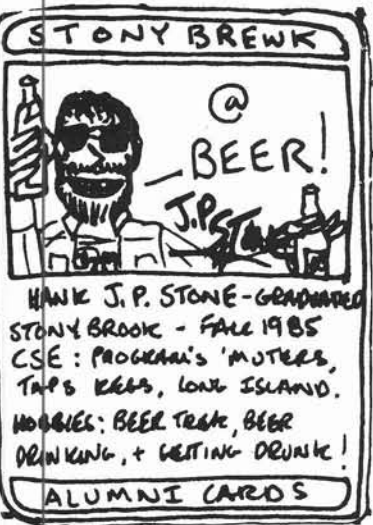 STONY BREWK
@
BEER!
J.P. STONE
HANK J.P. STONE - GRADUATED
STONY BROOK - FALL 1985
CSE: PROGRAM'S 'MUTERS,
TAPS KEGS, LONG ISLAND.
HOBBIES: BEER TREK, BEER
DRINKING, + GETTING DRUNK!
ALUMNI CARDS